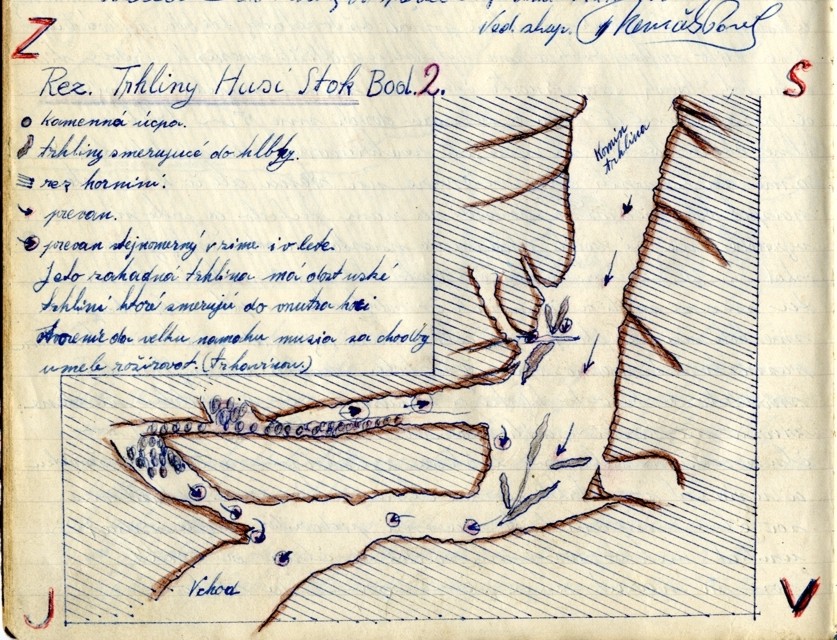 Ved. skup.
Z
S
Rez. Trhliny Husí Stok Bod. 2.
kamenná úcpa.
trhliny smerujucé do hlbky.
rez horniní.
prevan.
prevan stejnomerný v zime i v lete.
Jeto zahadná trhlina má dost uské
trhliní ktoré smerujú do vnutra
da velku namahu musia sa chodby
umele rozširovat. (trhavinou.)
Komín
trhlina
Vchod
J
V